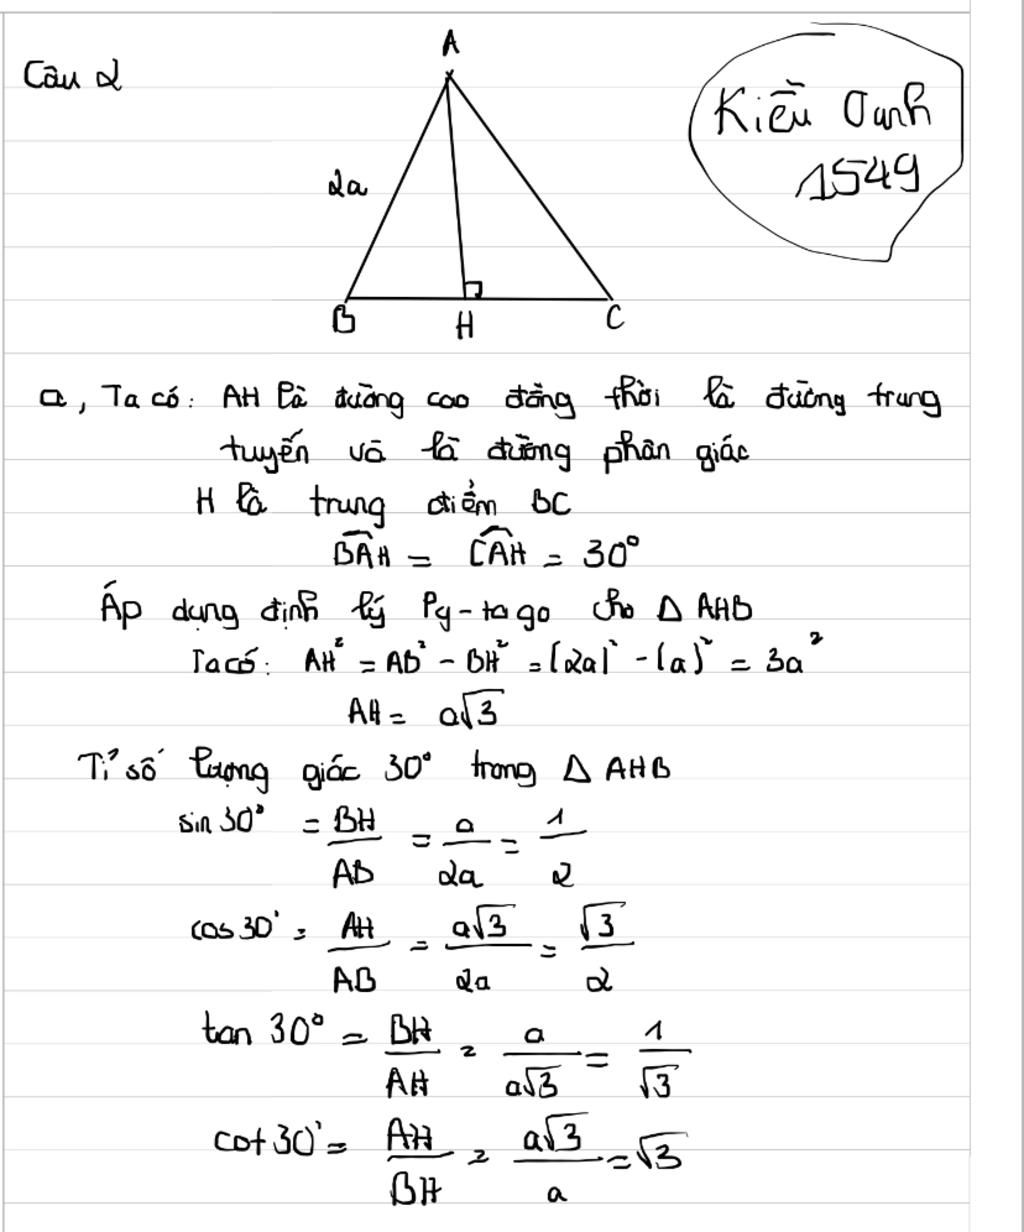 Câu 2
A
Kiều Oanh
1549
2a
B
H
C
a, Ta có: AH là đường cao đồng thời là đường trung
tuyến và là đường phân giác
H là trung điểm BC
\widehat{BAH} = \widehat{CAH} = 30°
Áp dụng định lý Py-ta go cho Δ AHB
Ta có: AH² = AB² - BH² = (2a)² - (a)² = 3a²
AH = a√3
Tỉ số lượng giác 30° trong Δ AHB
sin 30° = BH/AB = a/2a = 1/2
cos 30° = AH/AB = a√3/2a = √3/2
tan 30° = BH/AH = a/a√3 = 1/√3
cot 30° = AH/BH = a√3/a = √3